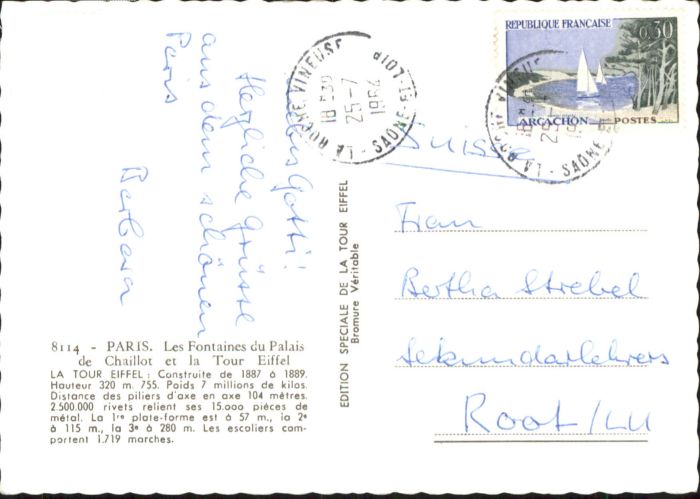 Gotti!
Herzliche Grüsse
aus dem schönen
Paris
Barbara
8114 - PARIS. Les Fontaines du Palais
de Chaillot et la Tour Eiffel
LA TOUR EIFFEL : Construite de 1887 à 1889.
Hauteur 320 m. 755. Poids 7 millions de kilos.
Distance des piliers d'axe en axe 104 mètres.
2.500.000 rivets relient ses 15.000 pièces de
métal. La 1re plate-forme est à 57 m., la 2e
à 115 m., la 3e à 280 m. Les escaliers com-
portent 1.719 marches.
EDITION SPECIALE DE LA TOUR EIFFEL
Bromure Véritable
LA ROCHE VINEUSE
18 H30
25-7
1964
SAONE-ET-LOIRE
REPUBLIQUE FRANÇAISE
0,30
ARCACHON
POSTES
Suisse
Frau
Bertha Strebel
Sekundarlehrers
Root/LU